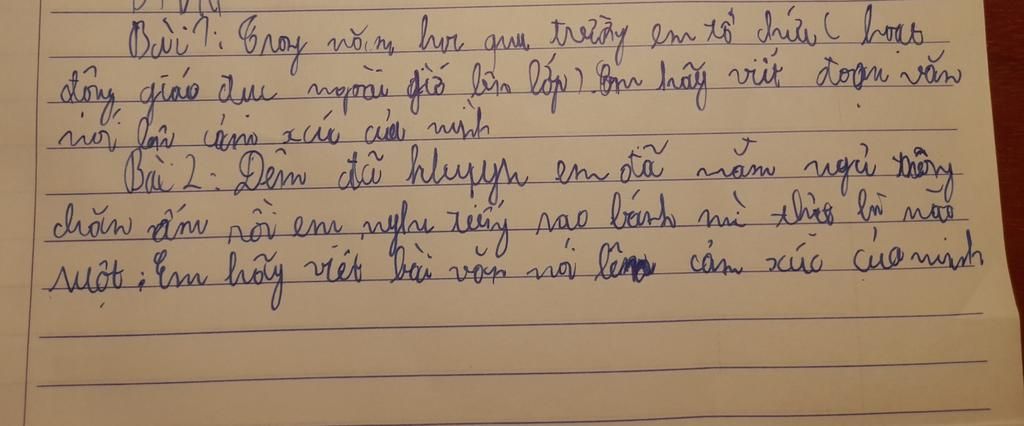 Bài 1: Trong năm học qua trường em tổ chức ( hoạt
động giáo dục ngoài giờ lên lớp ) Em hãy viết đoạn văn
nói lên cảm xúc của mình
Bài 2: Đêm đã khuya em đã nằm ngủ trong
chăn ấm rồi em nghe tiếng rao bánh mì
Em hãy viết bài văn nói lên cảm xúc của mình